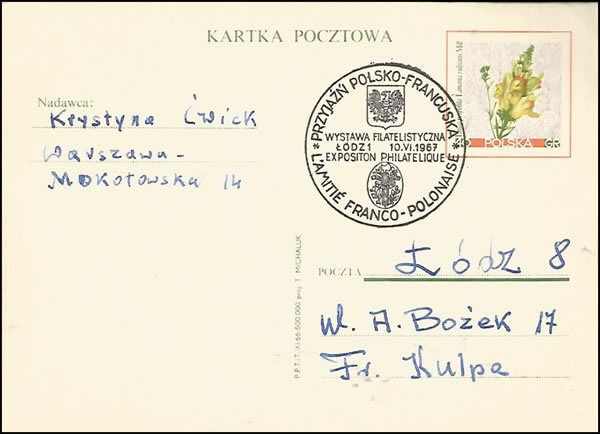 KARTKA POCZTOWA
Nadawca:
Krystyna Ćwick
Warszawa-
Mokotowska 14
* PRZYJAŹŃ POLSKO-FRANCUSKA *
WYSTAWA FILATELISTYCZNA
ŁÓDŹ1 10.VI.1967
EXPOSITON PHILATELIQUE
L'AMITIÉ FRANCO-POLONAISE
POLSKA GR
POCZTA Łódź 8
ul. A. Bożek 17
Fr. Kulpa
P.P.T.i T. XI.66-500 000 proj. T. MICHALUK